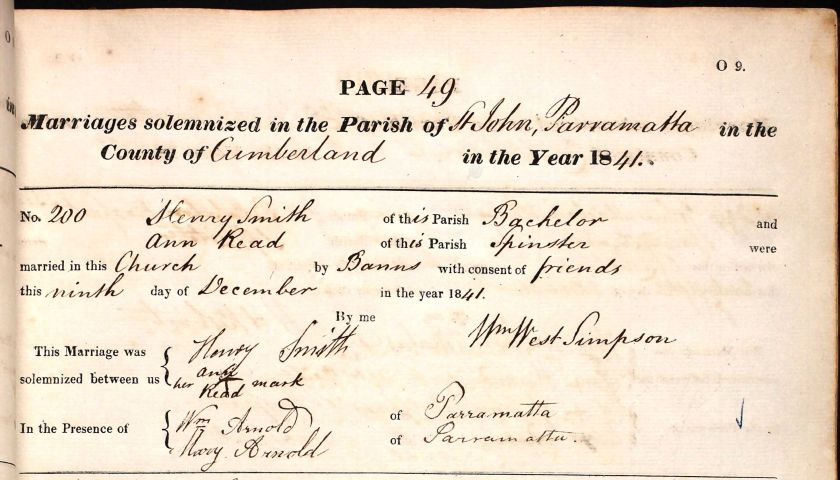 O 9.
PAGE 49
Marriages solemnized in the Parish of St John, Parramatta in the
County of Cumberland in the Year 1841.
No. 200 Henry Smith of this Parish Bachelor and
Ann Read of this Parish Spinster were
married in this Church by Banns with consent of friends
this ninth day of December in the year 1841.
By me
Wm West Simpson
This Marriage was solemnized between us { Henry Smith
Ann
her X mark
Read
In the Presence of { Wm Arnold of Parramatta
Mary Arnold of Parramatta.